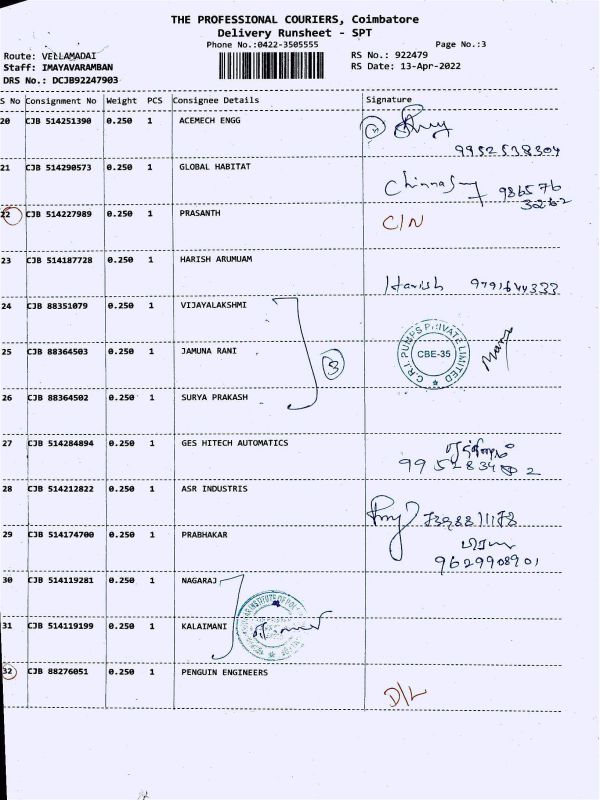 THE PROFESSIONAL COURIERS, Coimbatore
Delivery Runsheet - SPT
Phone No.:0422-3505555 Page No.:3
Route: VELLAMADAI RS No.: 922479
Staff: IMAYAVARAMBAN RS Date: 13-Apr-2022
DRS No.: DCJB92247903
S No Consignment No Weight PCS Consignee Details Signature
20 CJB 514251390 0.250 1 ACEMECH ENGG
9952538304
21 CJB 514290573 0.250 1 GLOBAL HABITAT
986576
22 CJB 514227989 0.250 1 PRASANTH C/N
23 CJB 514187728 0.250 1 HARISH ARUMUAM
Harish 9791644333
24 CJB 88351079 0.250 1 VIJAYALAKSHMI
25 CJB 88364503 0.250 1 JAMUNA RANI 3 C.R.I. PUMPS PRIVATE LIMITED CBE-35
26 CJB 88364502 0.250 1 SURYA PRAKASH
27 CJB 514284894 0.250 1 GES HITECH AUTOMATICS
28 CJB 514212822 0.250 1 ASR INDUSTRIS
29 CJB 514174700 0.250 1 PRABHAKAR
9629908901
30 CJB 514119281 0.250 1 NAGARAJ
31 CJB 514119199 0.250 1 KALAIMANI
32 CJB 88276051 0.250 1 PENGUIN ENGINEERS
D/L